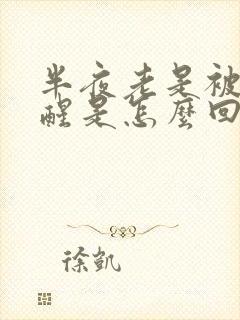 半夜老是被
醒是怎麼回
徐凱